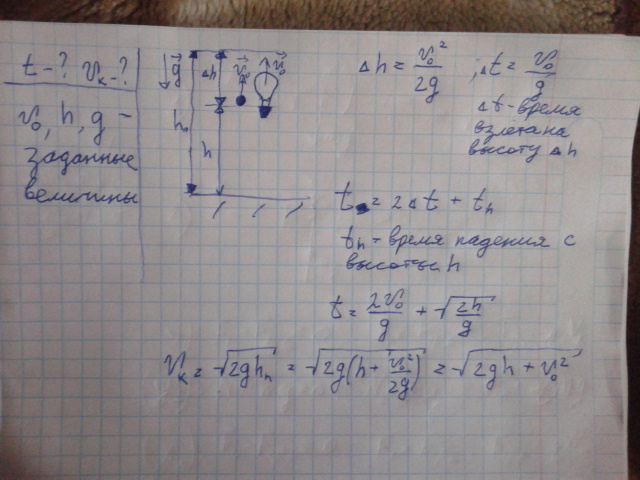 t - ? v_к - ?
v₀, h, g -
заданные
величины
g⃗
Δh
v⃗₀
v⃗₀
h
h
Δh = v₀²/2g ; Δt = v₀/g
Δt - время
взлета на
высоту Δh
t = 2Δt + t_h
t_h - время падения с
высоты h
t = 2v₀/g + √(2h/g)
v_к = √(2gh_n) = √(2g(h + v₀²/2g)) = √(2gh + v₀²)